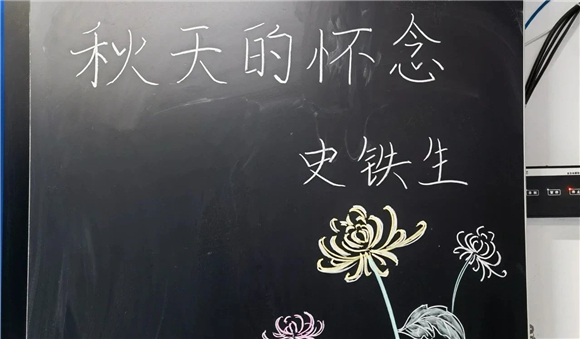 秋天的怀念
史铁生